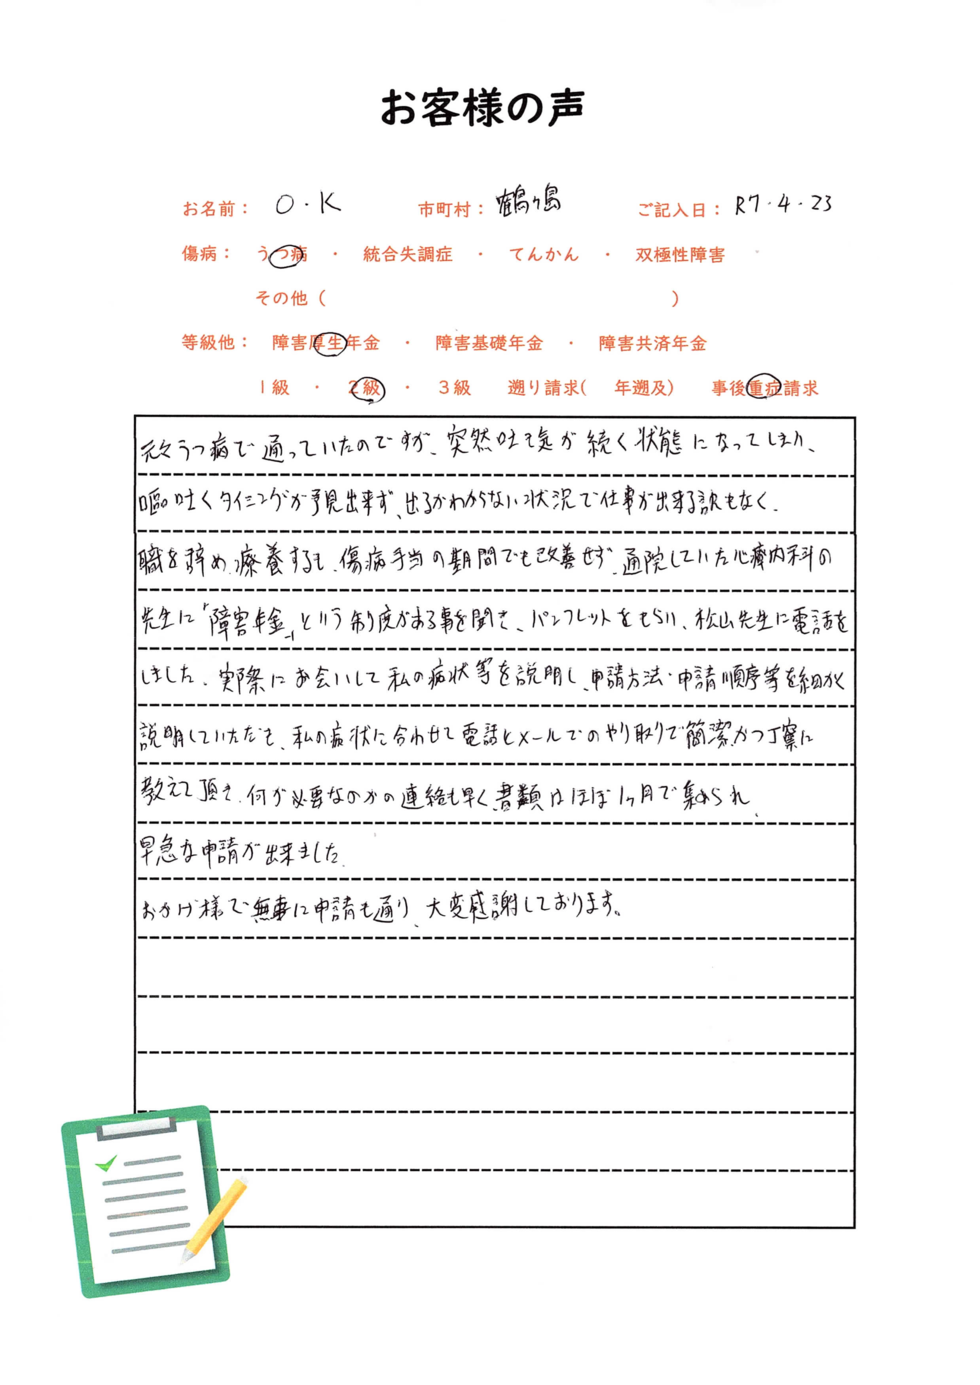 お客様の声
お名前： O・K 市町村： 鶴ヶ島 ご記入日： R7・4・23
傷病： うつ病 ・ 統合失調症 ・ てんかん ・ 双極性障害
その他（ ）
等級他： 障害厚生年金 ・ 障害基礎年金 ・ 障害共済年金
1級 ・ 2級 ・ 3級 遡り請求( 年遡及) 事後重症請求
元々うつ病で通っていたのですが、突然吐き気が続く状態になってしまい、
嘔吐くタイミングが予見出来ず、出るかわからない状況で仕事が出来る訳もなく、
職を辞め、療養するも、傷病手当の期間でも改善せず、通院していた心療内科の
先生に「障害年金」という制度がある事を聞き、パンフレットをもらい、松山先生に電話を
しました、実際にお会いして私の病状等を説明し、申請方法・申請順序等を細かく
説明していただき、私の病状に合わせて電話とメールでのやり取りで簡潔かつ丁寧に
教えて頂き、何が必要なのかの連絡も早く、書類はほぼ1ヶ月で集められ、
早急な申請が出来ました。
おかげ様で無事に申請も通り、大変感謝しております。